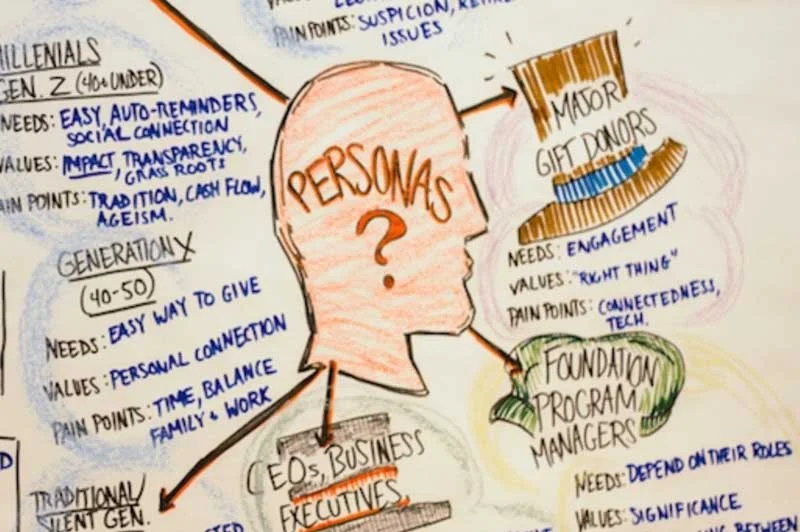 PAIN POINTS: SUSPICION,
ISSUES
MILLENIALS
GEN. Z (40 & UNDER)
NEEDS: EASY, AUTO-REMINDERS,
SOCIAL CONNECTION
VALUES: IMPACT, TRANSPARENCY,
GRASS ROOTS
PAIN POINTS: TRADITION, CASH FLOW,
AGEISM.
GENERATION X
(40-50)
NEEDS: EASY WAY TO GIVE
VALUES: PERSONAL CONNECTION
PAIN POINTS: TIME, BALANCE
FAMILY & WORK
TRADITIONAL/
SILENT GEN.
PERSONAS
?
MAJOR
GIFT DONORS
NEEDS: ENGAGEMENT
VALUES: "RIGHT THING"
PAIN POINTS: CONNECTEDNESS,
TECH.
FOUNDATION
PROGRAM
MANAGERS
NEEDS: DEPEND ON THEIR ROLES
VALUES: SIGNIFICANCE
BETWEEN
CEOs, BUSINESS
EXECUTIVES